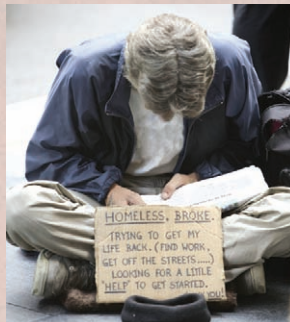 HOMELESS, BROKE.
TRYING TO GET MY
LIFE BACK. (FIND WORK,
GET OFF THE STREETS.....)
LOOKING FOR A LITTLE
"HELP" TO GET STARTED.
YOU!